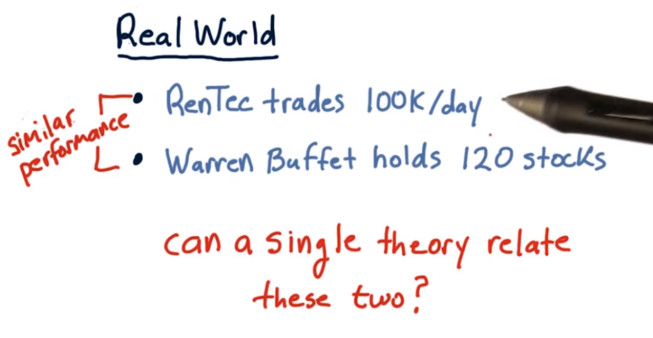 Real World
similar performance
• RenTec trades 100K/day
• Warren Buffet holds 120 stocks
can a single theory relate
these two?